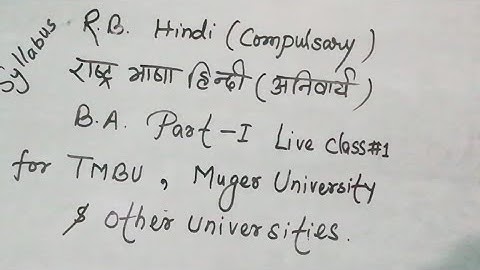 Syllabus
R.B. Hindi (Compulsary)
राष्ट्र भाषा हिन्दी (अनिवार्य)
B.A. Part-I Live class#1
for TMBU, Muger University
& Other universities.